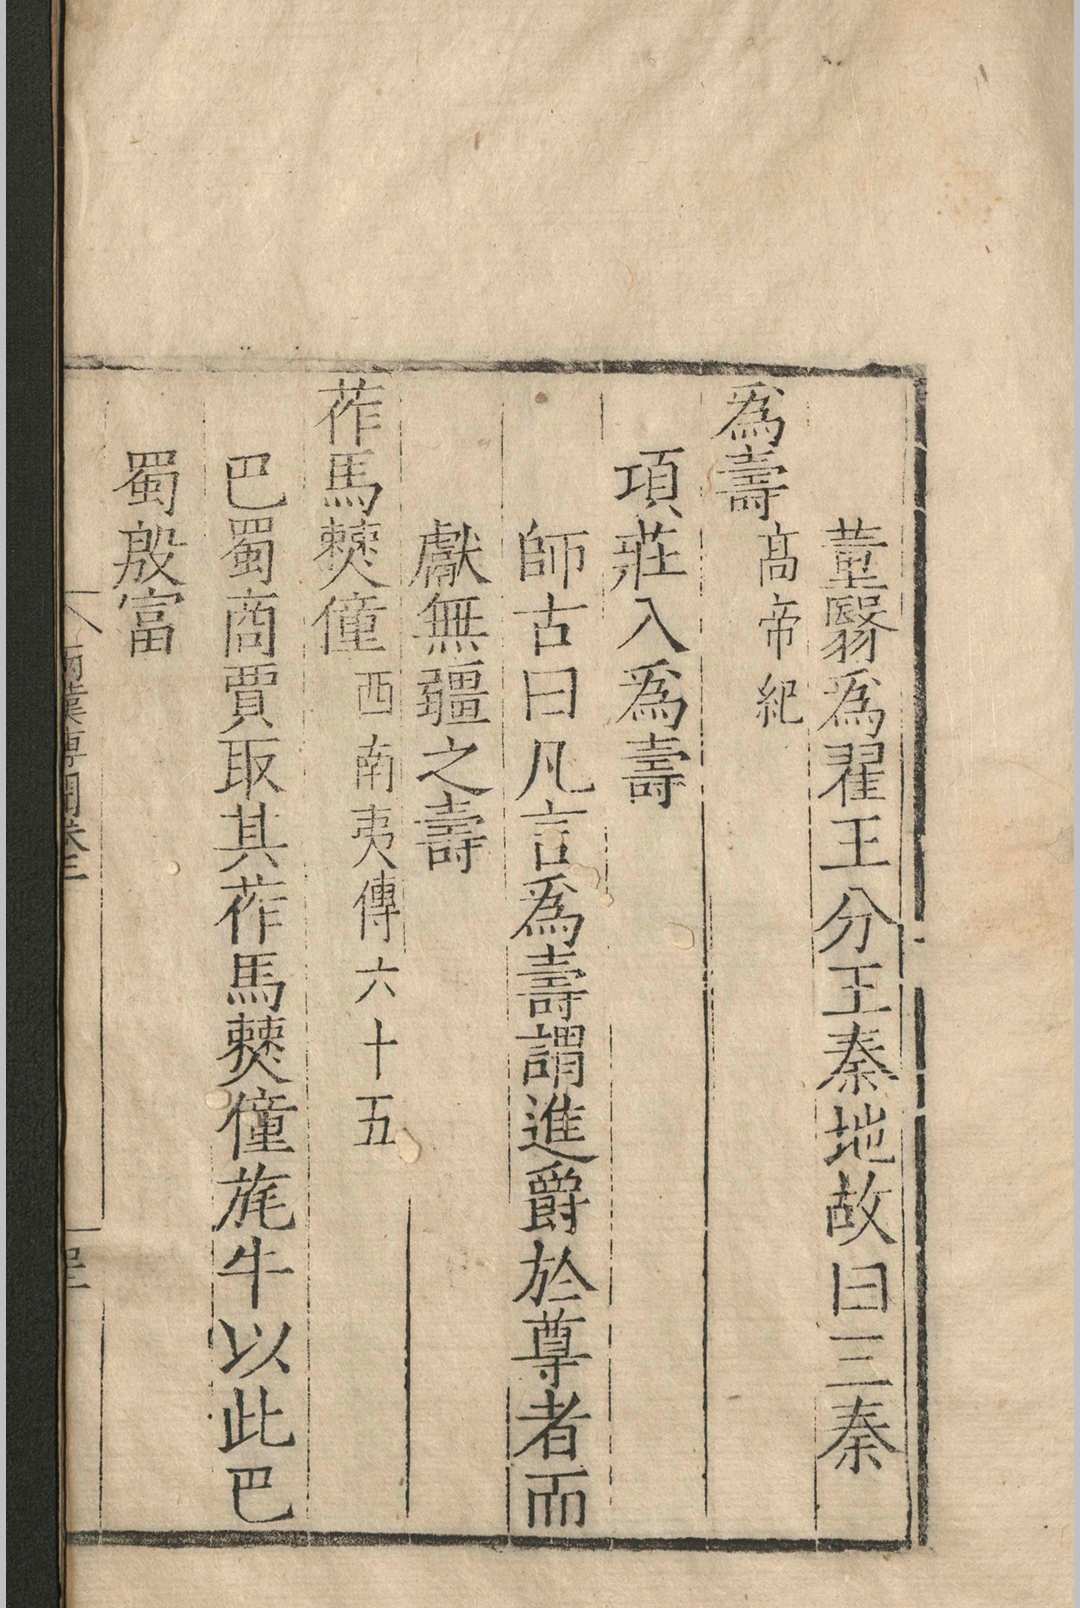 董翳爲翟王分王秦地故曰三秦
爲壽高帝紀
項莊入爲壽
師古曰凡言爲壽謂進爵於尊者而
獻無疆之壽
莋馬僰僮西南夷傳六十五
巴蜀商賈取其莋馬僰僮旄牛以此巴
蜀殷富
兩漢博聞卷三